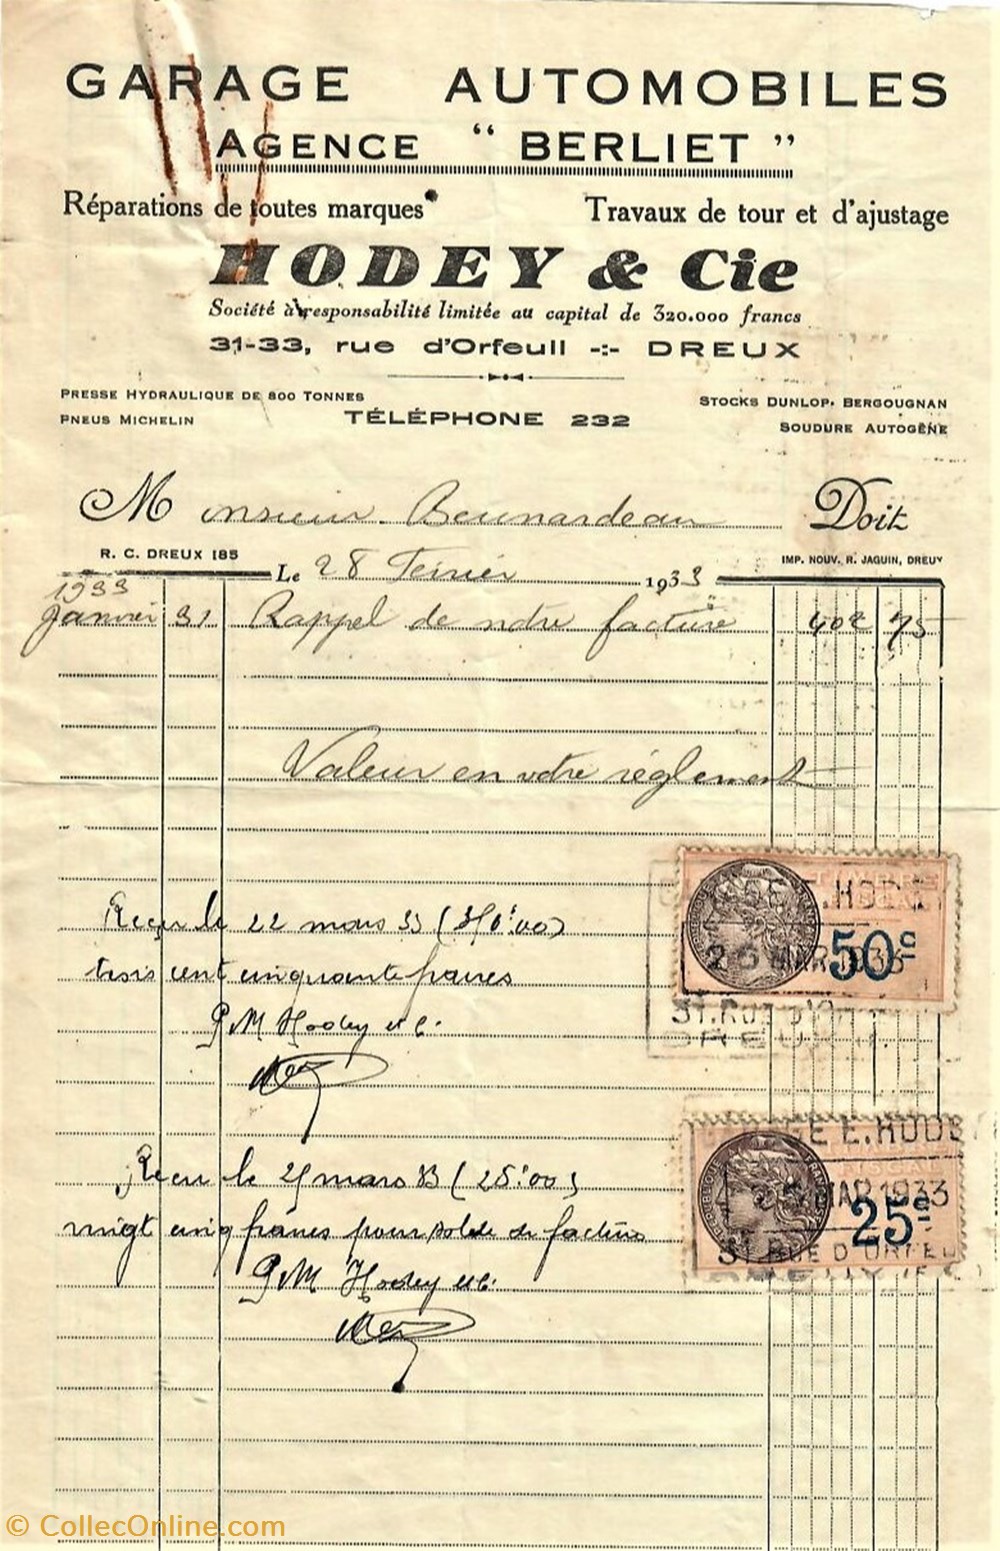 GARAGE AUTOMOBILES
AGENCE “ BERLIET ”
Réparations de toutes marques Travaux de tour et d'ajustage
HODEY & Cie
Société à responsabilité limitée au capital de 320.000 francs
31-33, rue d'Orfeuil -:- DREUX
PRESSE HYDRAULIQUE DE 800 TONNES
STOCKS DUNLOP. BERGOUGNAN
PNEUS MICHELIN
TÉLÉPHONE 232
SOUDURE AUTOGÈNE
Monsieur Doit
R. C. DREUX 185
IMP. NOUV. R. JAGUIN, DREUX
Le 28 Fevrier 1933
1933
Janvier 31 Rappel de notre facture 402 75
Valeur en votre réglement
Reçu le 22 mars 33
trois cent cinquante francs
P.M Hodey et C.
E. HODEY
MAR 1933
50c
31. RUE D'
DREUX
Reçu le mars 33 (25f.00)
vingt cinq francs pour solde de facture
P.M Hodey et C.
E. HODEY
MAR 1933
25c
31 RUE D'ORFEU
© CollecOnline.com